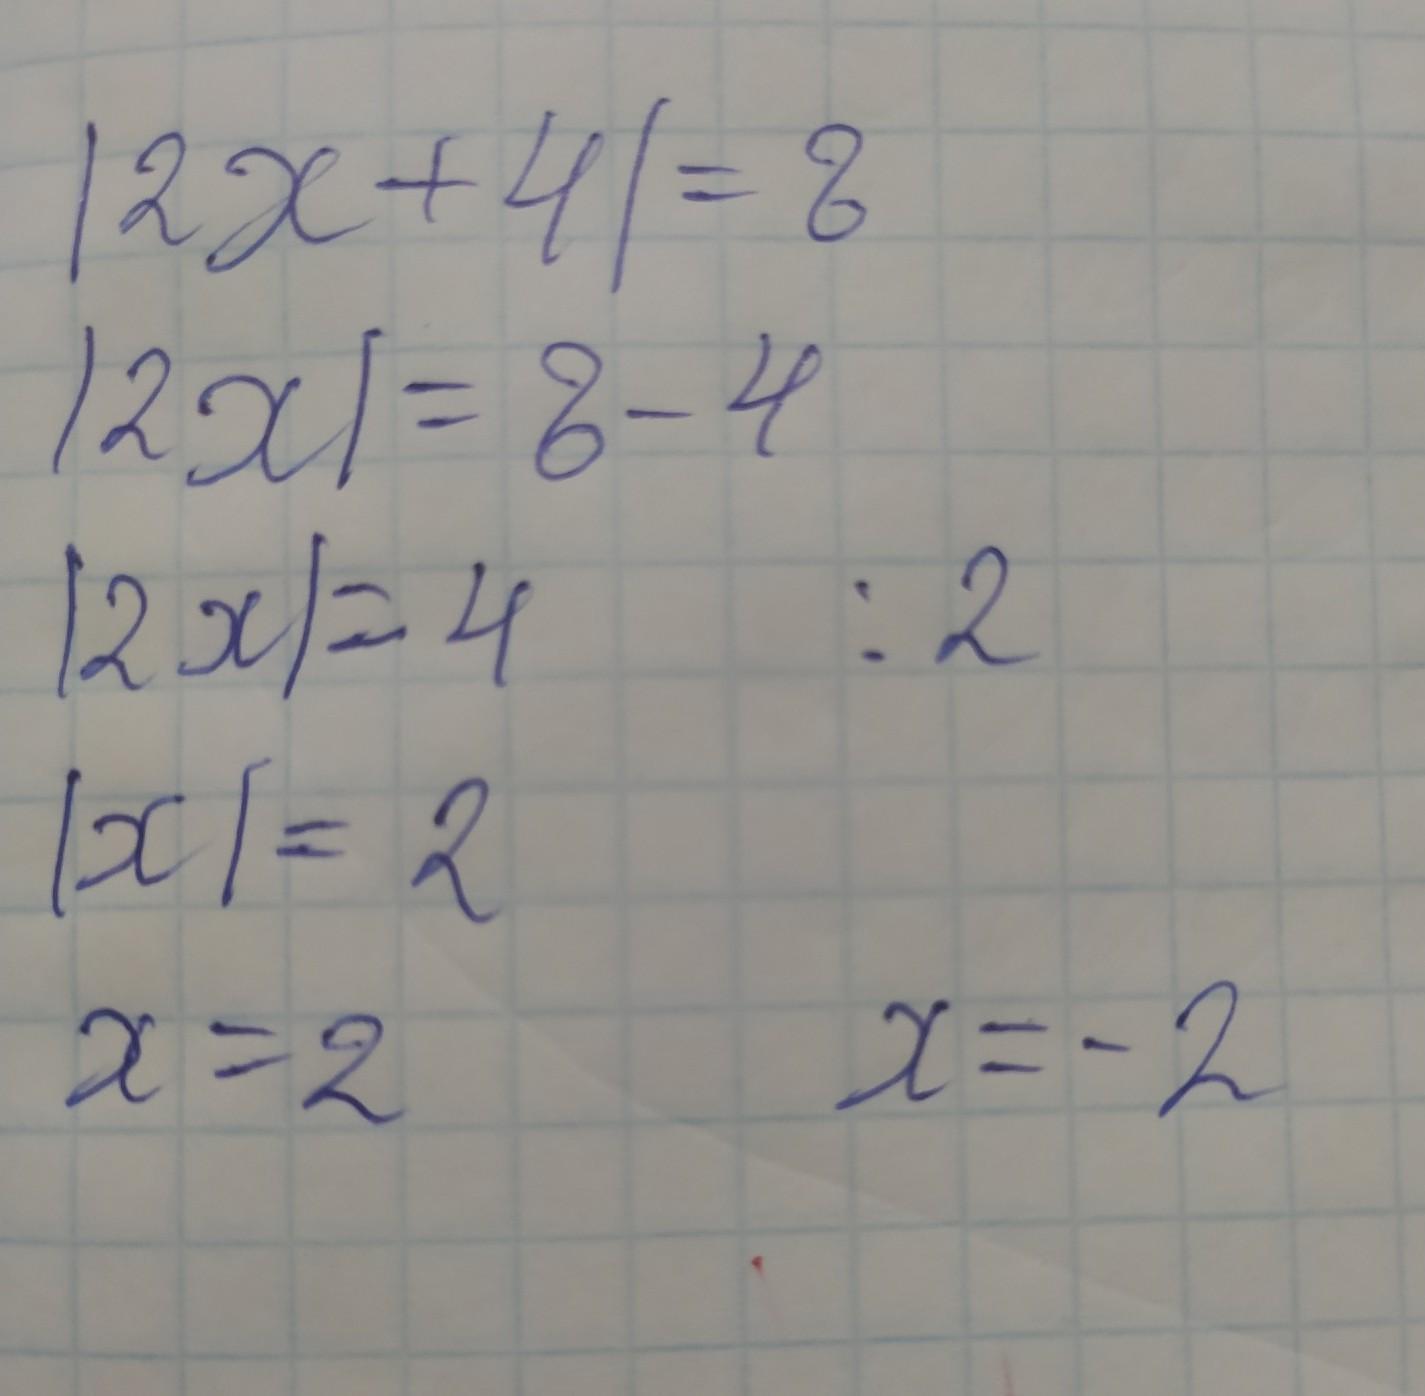 |2x+4|=8
|2x|=8-4
|2x|=4 :2
|x|=2
x=2 x=-2